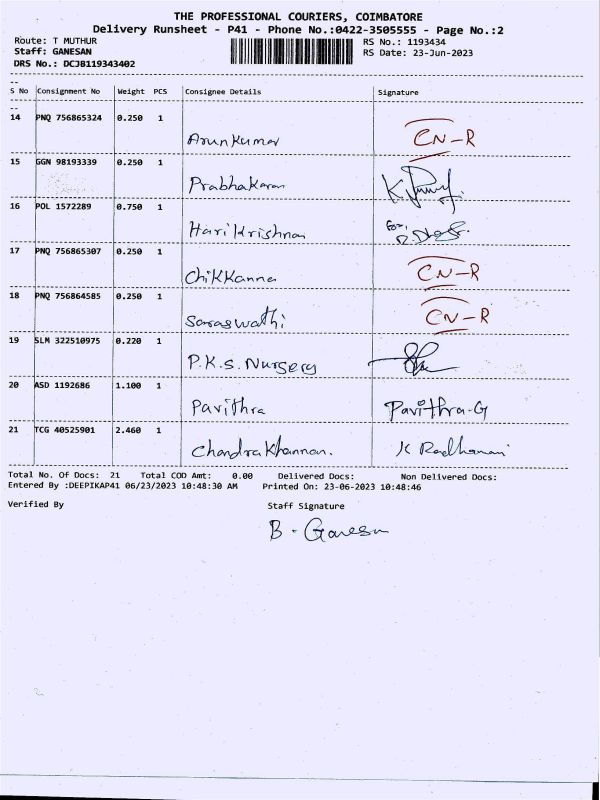 THE PROFESSIONAL COURIERS, COIMBATORE
Delivery Runsheet - P41 - Phone No.:0422-3505555 - Page No.:2
Route: T MUTHUR RS No.: 1193434
Staff: GANESAN RS Date: 23-Jun-2023
DRS No.: DCJ8119343402
S No Consignment No Weight PCS Consignee Details Signature
14 PNQ 756865324 0.250 1
Arunkumar CN-R
15 GGN 98193339 0.250 1
Prabhakaran
16 POL 1572289 0.750 1
Harikrishnan
17 PNQ 756865307 0.250 1
Chikkanna CN-R
18 PNQ 756864585 0.250 1
Saraswathi CN-R
19 SLM 322510975 0.220 1
P.K.S. Nursery
20 ASD 1192686 1.100 1
Pavithra Pavithra-G
21 TCG 40525901 2.460 1
Chandrakhannan. K Radhamani
Total No. Of Docs: 21 Total COD Amt: 0.00 Delivered Docs: Non Delivered Docs:
Entered By :DEEPIKAP41 06/23/2023 10:48:30 AM Printed On: 23-06-2023 10:48:46
Verified By Staff Signature
B. Ganesan